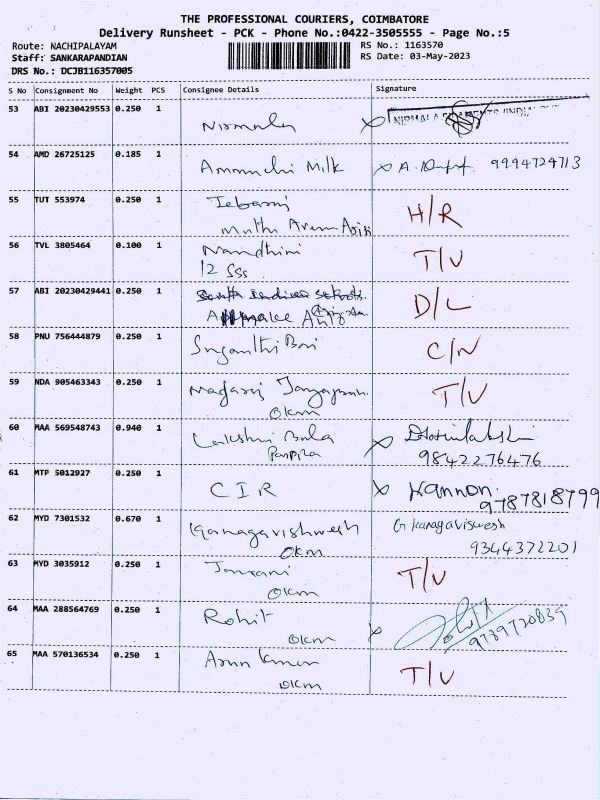 THE PROFESSIONAL COURIERS, COIMBATORE
Delivery Runsheet - PCK - Phone No.:0422-3505555 - Page No.:5
Route: NACHIPALAYAM RS No.: 1163570
Staff: SANKARAPANDIAN RS Date: 03-May-2023
DRS No.: DCJB116357005
S No Consignment No Weight PCS Consignee Details Signature
53 ABI 20230429553 0.250 1 Nirmala x NIRMALA
54 AMD 26725125 0.185 1 Ammuchi Milk x A. 9994724713
55 TUT 553974 0.250 1 Jebaraj H/R
Muthu
56 TVL 3805464 0.100 1 Nandhini T/V
12 SSS
57 ABI 20230429441 0.250 1 D/L
58 PNU 756444879 0.250 1 Suganthi Bai C/N
59 NDA 905463343 0.250 1 Nagaraj T/V
OKM
60 MAA 569548743 0.940 1 Lakshmi Bala x
9842276476
61 MTP 5012927 0.250 1 CIR x Kannan
9787818799
62 MYD 7301532 0.670 1 Kanagavishwesh G Kanagaviswesh
OKM 9344372201
63 MYD 3035912 0.250 1 T/V
OKM
64 MAA 288564769 0.250 1 Rohit x
OKM 9789720839
65 MAA 570136534 0.250 1 Arun Kumar T/V
OKM